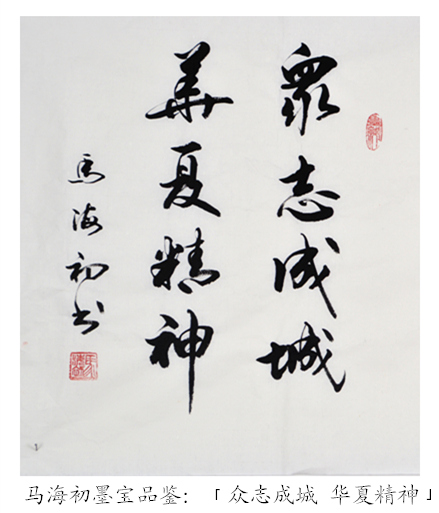 衆志成城
華夏精神
馬海初书
马海初墨宝品鉴：「众志成城 华夏精神」